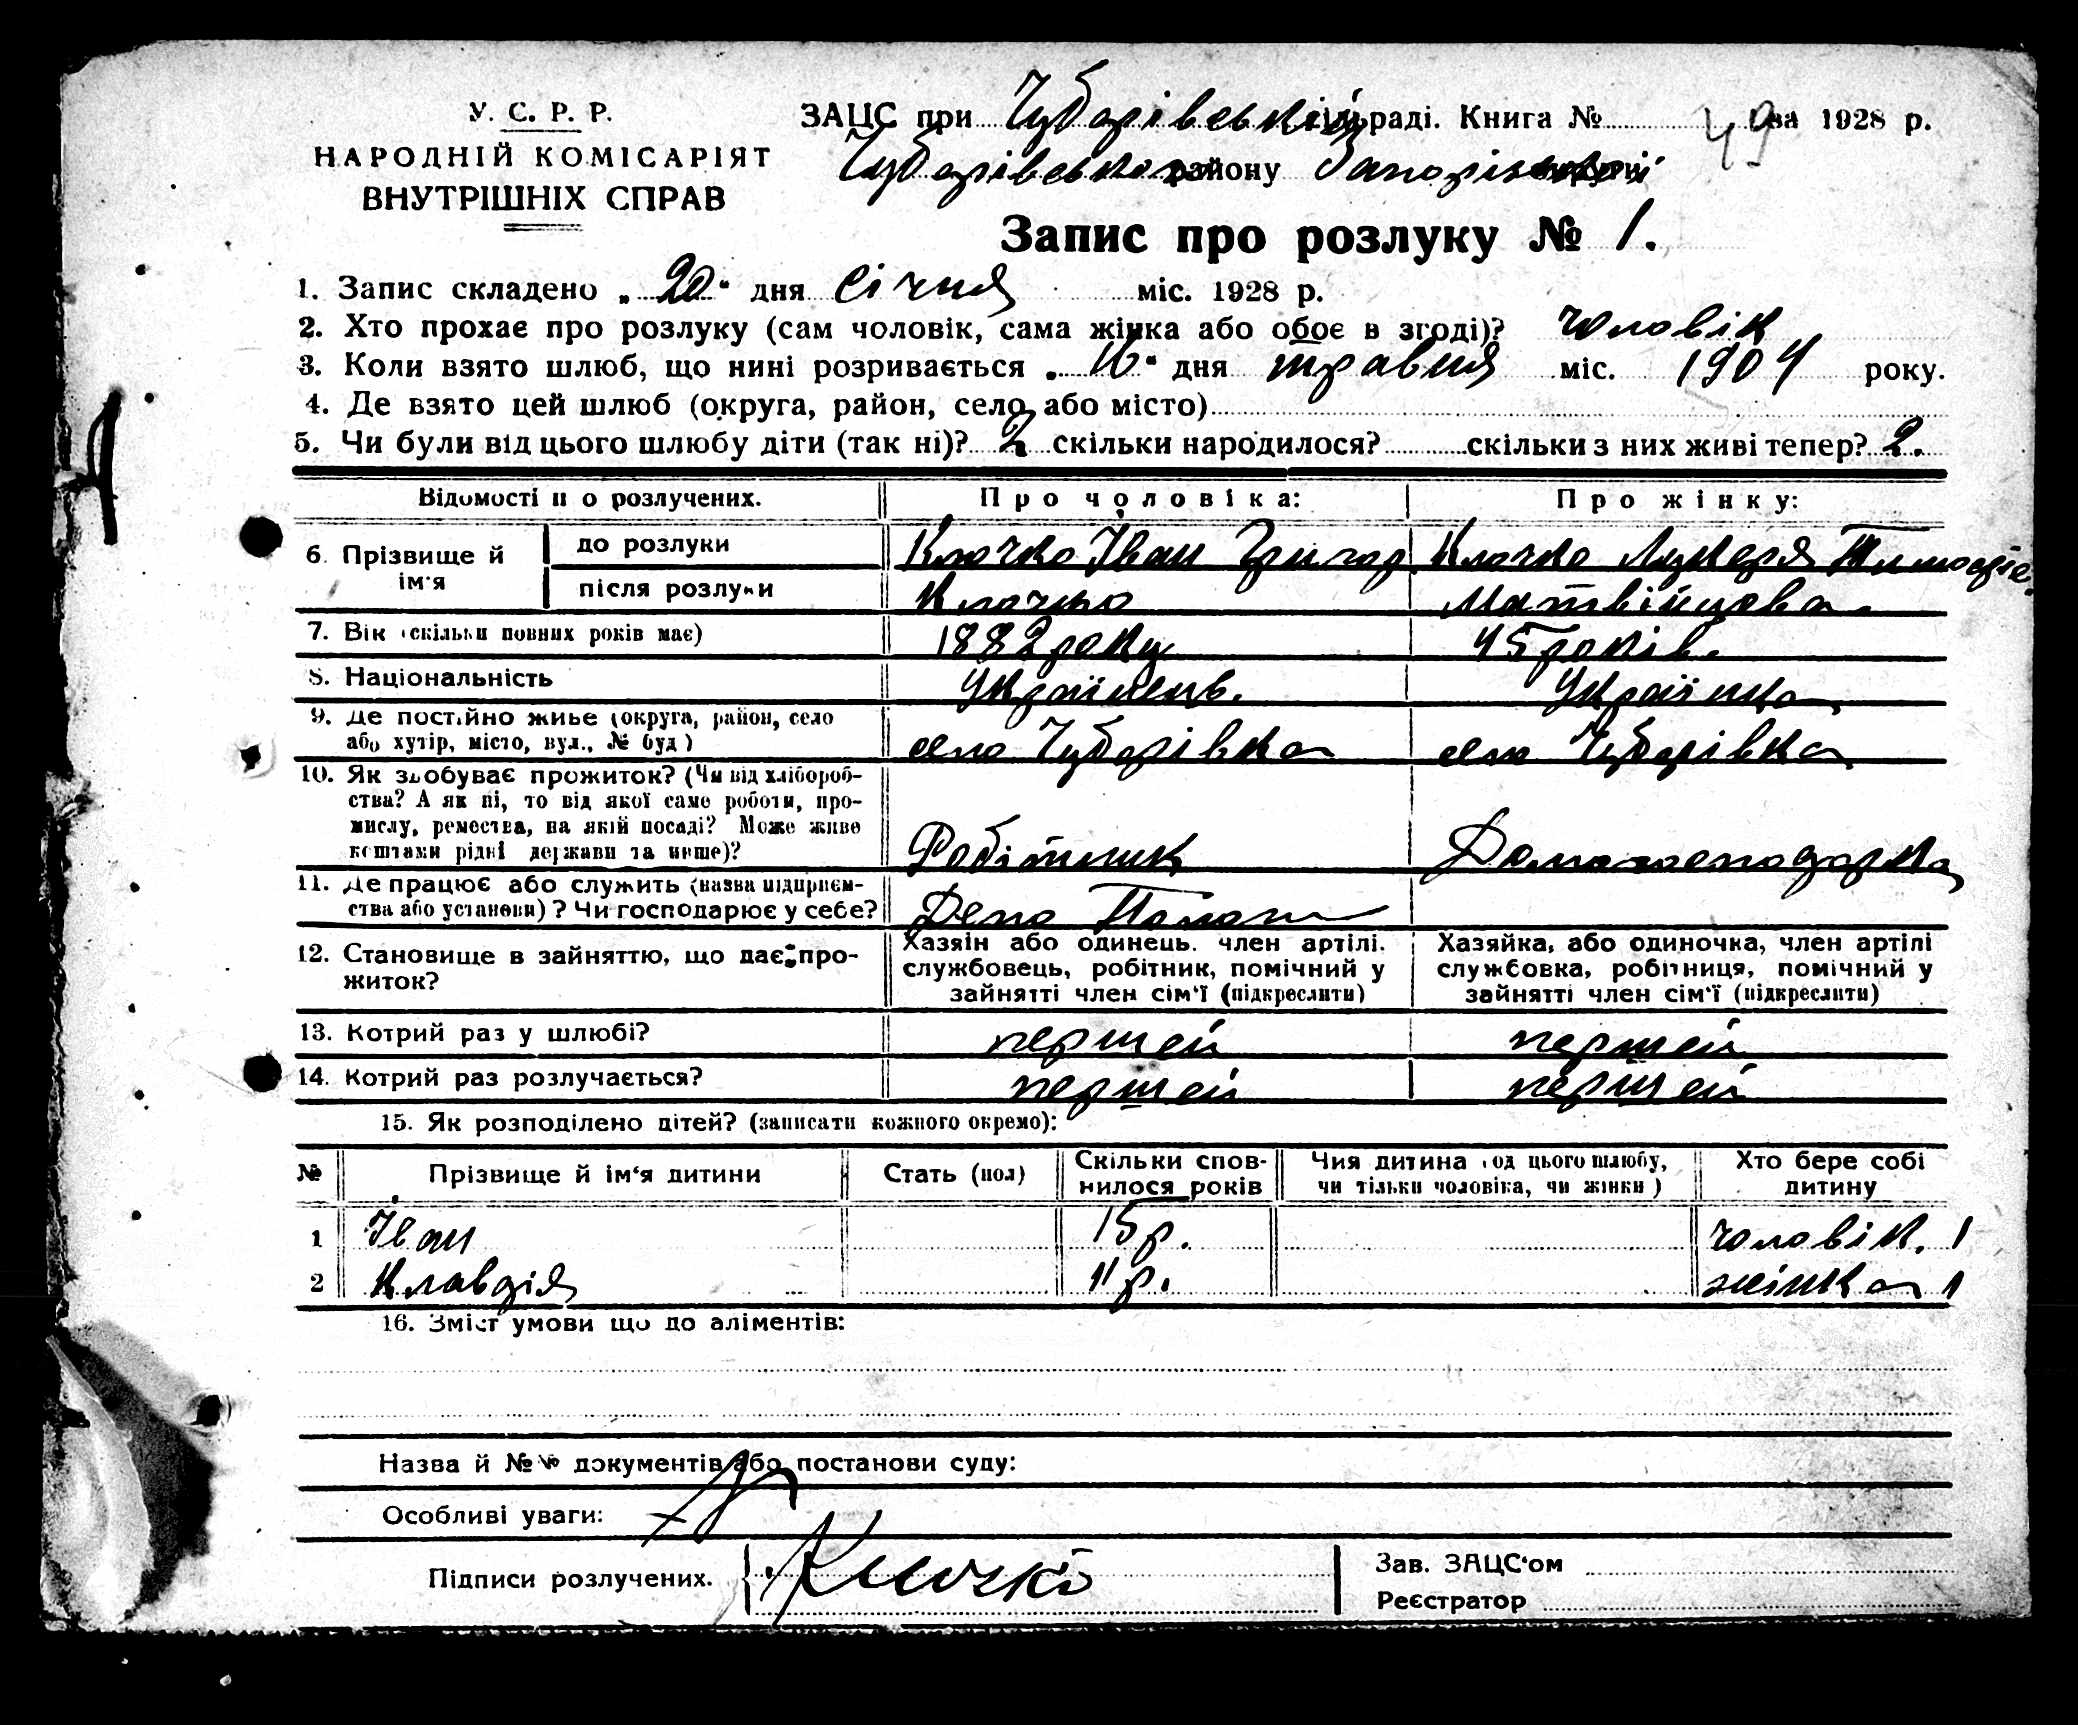 У. С. Р. Р.
НАРОДНІЙ КОМІСАРІЯТ
ВНУТРІШНІХ СПРАВ
ЗАЦС при Чубарівській сільраді. Книга № 49 за 1928 р.
Чубарівського району Запорізької округи
Запис про розлуку № 1.
1. Запис складено „20“ дня січня міс. 1928 р.
2. Хто прохає про розлуку (сам чоловік, сама жінка або обоє в згоді)? чоловік
3. Коли взято шлюб, що нині розривається „16“ дня травня міс. 1904 року.
4. Де взято цей шлюб (округа, район, село, або місто)
5. Чи були від цього шлюбу діти (так ні)? 2 скільки народилося? скільки з них живі тепер? 2.
Відомості п о розлучених. Про чоловіка: Про жінку:
6. Прізвище й ім'я до розлуки Клочко Іван Григор. Клочко Лукеря Тимофіє.
після розлуки Клочко Матвійцова.
7. Вік (скільки повних років має) 1882 року 45 років.
8. Національність Українець. Українка
9. Де постійно живе (округа, район, село
або хутір, місто, вул., № буд) село Чубарівка село Чубарівка
10. Як здобуває прожиток? (Чи від хлібороб-
ства? А як ні, то від якої саме роботи, про-
мислу, ремества, на якій посаді? Може живе
коштами рідні держави та инше)? Робітник Домогосподарка
11. Де працює або служить (назва підприєм-
ства або установи)? Чи господарює у себе? Депо Пологи
12. Становище в зайняттю, що дає про-
житок?
Хазяїн або одинець. член артілі.
службовець, робітник, помічний у
зайнятті член сім'ї (підкреслити)
Хазяйка, або одиночка, член артілі
службовка, робітниця, помічний у
зайнятті член сім'ї (підкреслити)
13. Котрий раз у шлюбі? першей першей
14. Котрий раз розлучається? першей першей
15. Як розподілено дітей? (записати кожного окремо):
№ Прізвище й ім'я дитини Стать (пол) Скільки спов-
нилося років Чия дитина (од цього шлюбу,
чи тільки чоловіка, чи жінки) Хто бере собі
дитину
1 Іван 15 р. чоловік. 1
2 Клавдія 11 р. жінка 1
16. Зміст умови що до аліментів:
Назва й №№ документів або постанови суду:
Особливі уваги:
Підписи розлучених. Клочко
Зав. ЗАЦС'ом
Реєстратор